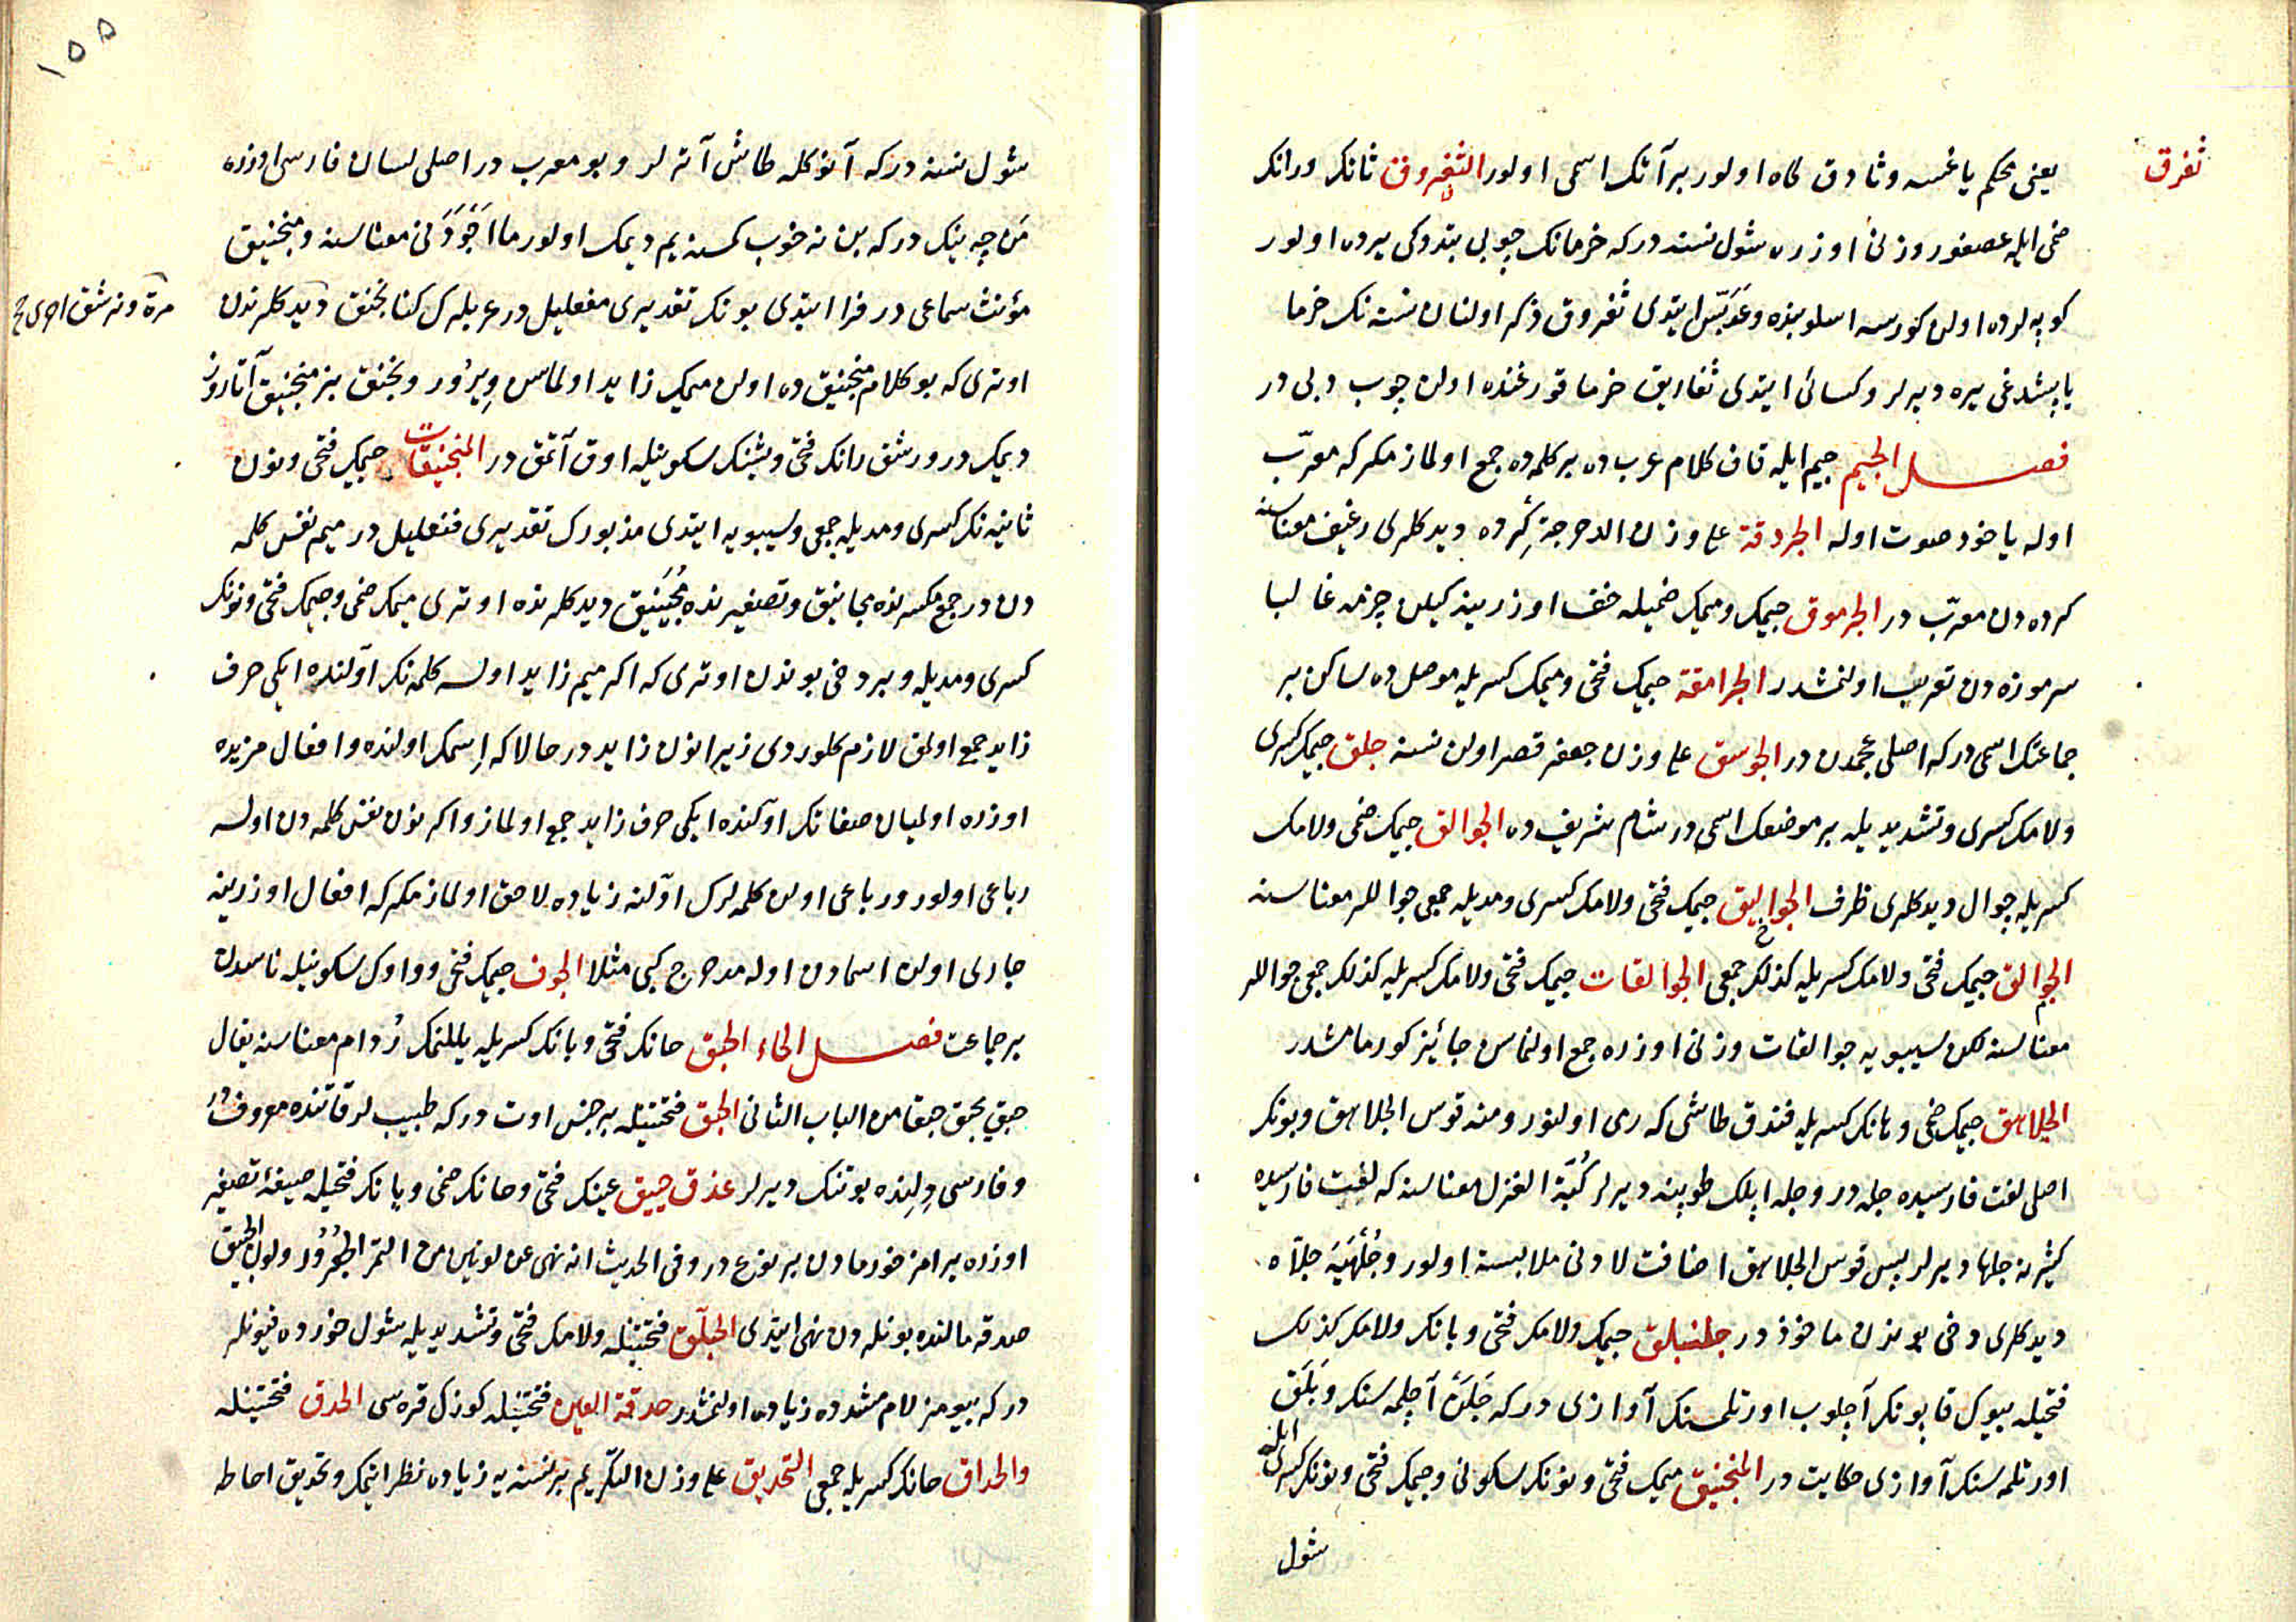 ثفرق
يعنى محكم ياغسه وثادق كاه اولور بر آتك اسمى اولور الثفروق ثانك ورانك
ضمى ايله عصفور وزنى اوزره شول نسنه دركه خرمانك چوبى بتدوكى يرده اولور
كوپه لرده اولن كورسه اسلوبنده وعدبّس ايتدى ثفروق ذكر اولنان نسنه نك خرما
ياپشدغى يره ديرلر وكسائى ايتدى ثفاريق خرما قورغنده اولن چوب دبى در
فصل الجيم جيم ايله قاف كلام عربده بر كلمه ده جمع اولماز مكر كه معرّب
اوله ياخود صوت اوله الجردقة على وزن الدحرجة كرده ديدكلرى رغيف معناسنه
كرده دن معرّب در الجرموق جيمك وميمك ضميله خف اوزرينه كيلن چزمه غالبا
سرموزه دن تعريب اولنمشدر الجرامقة جيمك فتحى وميمك كسريله موصل ده ساكن بر
جماعتك اسمى دركه اصلى عجمدن در الجوسق على وزن جعفر قصر اولن نسنه جلق جيمك كسرى
ولامك كسرى وتشديديله بر موضعك اسمى در شام شريف ده الجوالق جيمك ضمى ولامك
كسريله چوال ديدكلرى ظرف الجواليق جيمك فتحى ولامك كسرى ومديله جمعى جواللر معناسنه
الجوالق جيمك فتحى ولامك كسريله كذلك جمعى الجوالقات جيمك فتحى ولامك كسريله كذلك جمعى جواللر
معناسنه لكن سيبويه جوالقات وزنى اوزره جمع اولنماسن جائيز كورمامشدر
الجلاهق جيمك ضمى وهانك كسريله فندق طاشى كه رمى اولنور ومنه قوس الجلاهق وبونك
اصلى لغت فارسيده جله در وجله ايپلك طوپينه ديرلر كُبّة الغزل معناسنه كه لغت فارسيده
كثيرنه جلها ديرلر پس قوس الجلاهق اضافت لادنى ملابسة اولور وجُلَهيَه جلآه
ديدكلرى دخى بوندن ماخوذ در جلنبلق جيمك ولامك فتحى وبانك ولامك كذلك
فتحيله بيوك قاپونك آچلوب اورتلمسنك آوازى دركه جَلَنْ آچلمه سنك وبَلَق
اورتلمه سنك آوازى حكايت در المنجنيق ميمك فتحى ونونك سكونى وجيمك فتحى ونونك كسرى ايله
شول
١٥٥
شول نسنه دركه آنوكله طاش آته لر وبو معرب در اصلى لسان فارسى اوزره
مَن چه نيك دركه بن نه خوب كسنه يم ديمك اولور ما اَجْوَدَنى معناسنه ومنجنيق
مؤنث سماعى در فرا ايتدى بونك تقديرى مفعليل در عربلرك كنا نجنق ديدكلرندن
مرة ونرشق اخرى صح
اوترى كه بو كلام منجنيق ده اولن ميمك زايد اولماسن ويرُور ونجنق بز منجنيق آتاروز
ديمك در ورشق رانك فتحى وشينك سكونيله اوق آتمق در المنجنيقات جيمك فتحى ونون
ثانيه نك كسرى ومديله جمعى وسيبويه ايتدى مذبورك تقديرى فنعليل در ميم نفس كلمه
دن در جمع مكسرنده مجانيق وتصغيرنده مُجَينيق ديدكلرنده اوترى ميمك ضمى وجيمك فتحى ونونك
كسرى ومديله وبر دخى بوندن اوترى كه اكر ميم زايد اولسه كلمه نك اولنده ايكى حرف
زايد جمع اولمق لازم كلوردى زيرا نون زايد در حالا كه اِسمك اولنده وافعال مزيده
اوزره اولميان صفاتك اولنده ايكى حرف زايد جمع اولماز واكر نون نفس كلمه دن اولسه
رباعى اولور ورباعى اولن كلمه لرك اولنه زياده لاحق اولماز مكر كه افعال اوزرينه
جارى اولن اسمادن اوله مدحرج كبى مثلا الجوق جيمك فتحى وواوك سكونيله ناسدن
بر جماعت فصل الحاء الحبق حانك فتحى وبانك كسريله يللنمك ردام معناسنه يقال
حبق يحبق حبقا من الباب الثانى الحبق فتحتينله بر جنس اوت دركه طبيب لر قاتنده معروفدُر
وفارسى دِلِنده پوتنك ديرلر عذق حبيق عينك فتحى وحانك ضمى وبانك فتحيله صيغۀ تصغير
اوزره يرامز خورمادن بر نوع در وفى الحديث انه نهى عن لونين من التمر الجُعْرُور ولون الحبيق
صدقه مالنده بونلردن نهى ايتدى الحبلّق فتحتينله ولامك فتحى وتشديديله شول خورده قيونلر
دركه بيومز لام مشدده زياده اولنمشدر حدقة العين فتحتينله كوزك قره سى الحدق فتحتينله
والحداق حانك كسريله جمعى التحديق على وزن التكريم بر نسنه يه زياده نظر ايتمك وتحديق احاطه